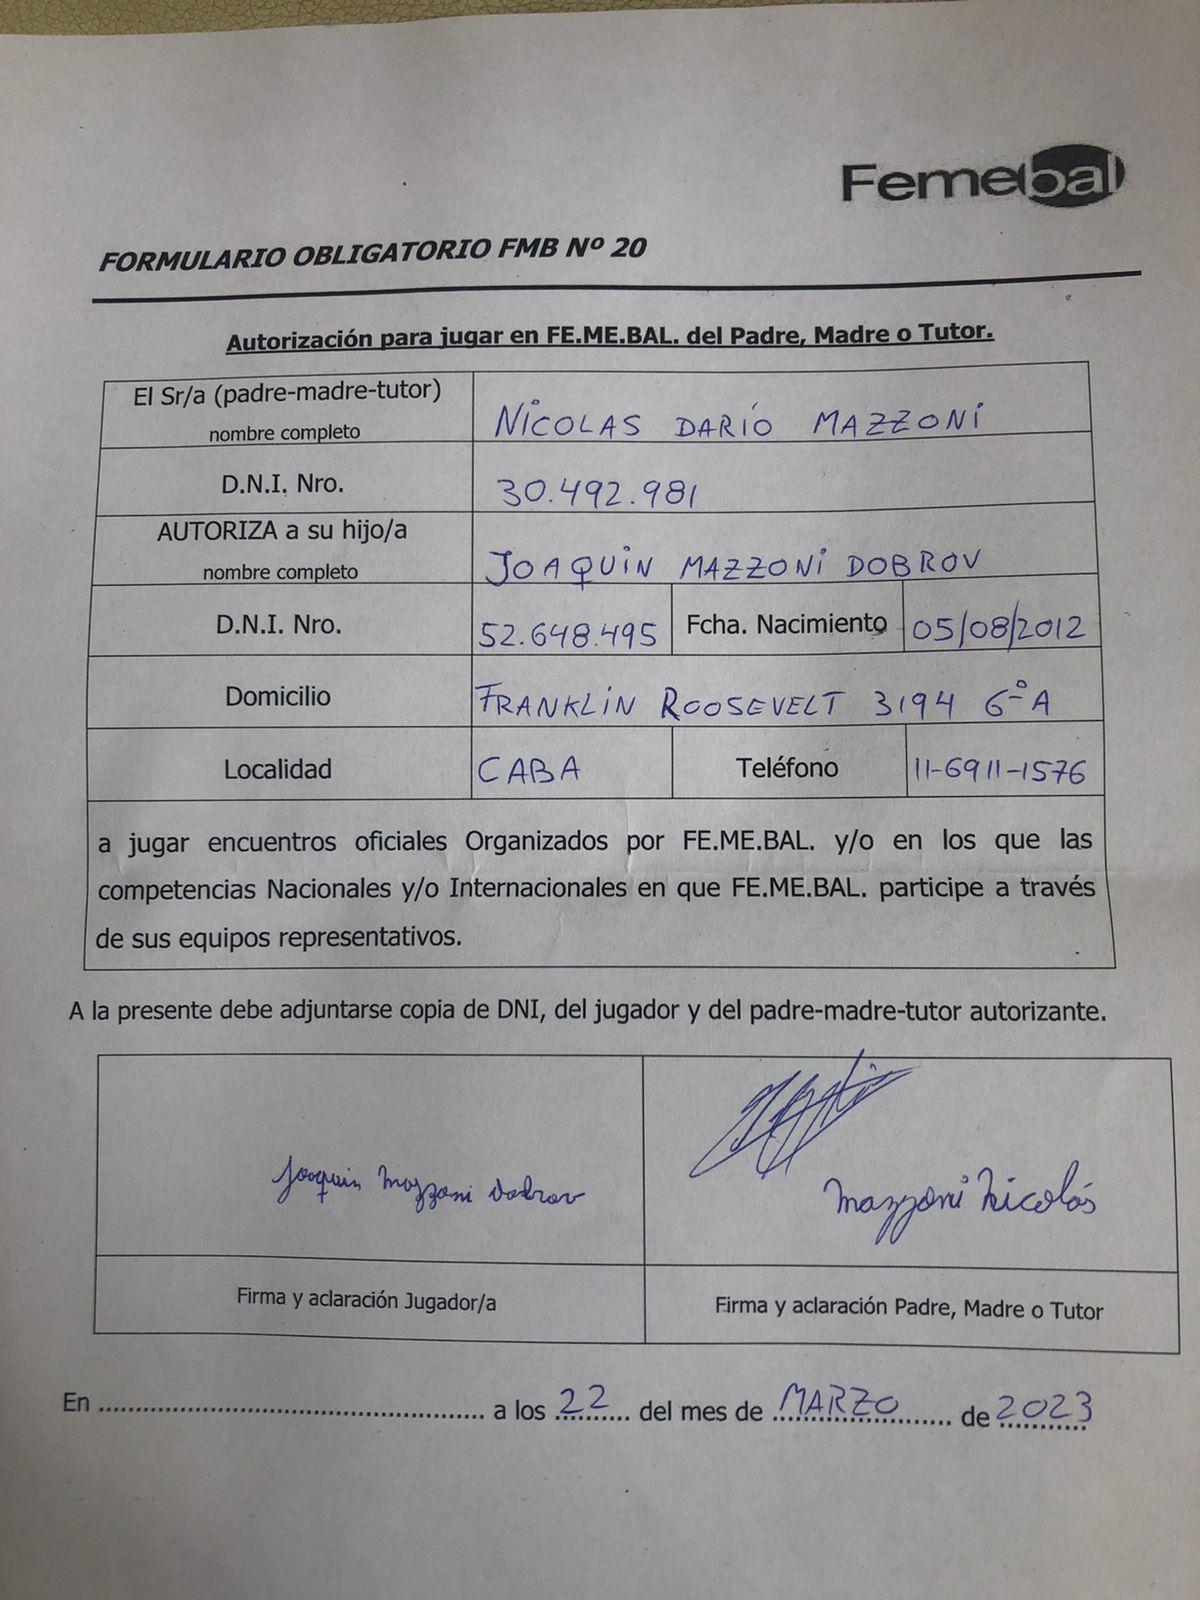 Femebal
FORMULARIO OBLIGATORIO FMB Nº 20
Autorización para jugar en FE.ME.BAL. del Padre, Madre o Tutor.
El Sr/a (padre-madre-tutor)
nombre completo
NICOLAS DARÍO MAZZONI
D.N.I. Nro.
30.492.981
AUTORIZA a su hijo/a
nombre completo
JOAQUIN MAZZONI DOBROV
D.N.I. Nro.
52.648.495
Fcha. Nacimiento
05/08/2012
Domicilio
FRANKLIN ROOSEVELT 3194 6º A
Localidad
CABA
Teléfono
11-6911-1576
a jugar encuentros oficiales Organizados por FE.ME.BAL. y/o en los que las
competencias Nacionales y/o Internacionales en que FE.ME.BAL. participe a través
de sus equipos representativos.
A la presente debe adjuntarse copia de DNI, del jugador y del padre-madre-tutor autorizante.
Joaquin Mazzoni Dobrov
Mazzoni Nicolás
Firma y aclaración Jugador/a
Firma y aclaración Padre, Madre o Tutor
En .................................................... a los 22 del mes de MARZO de 2023